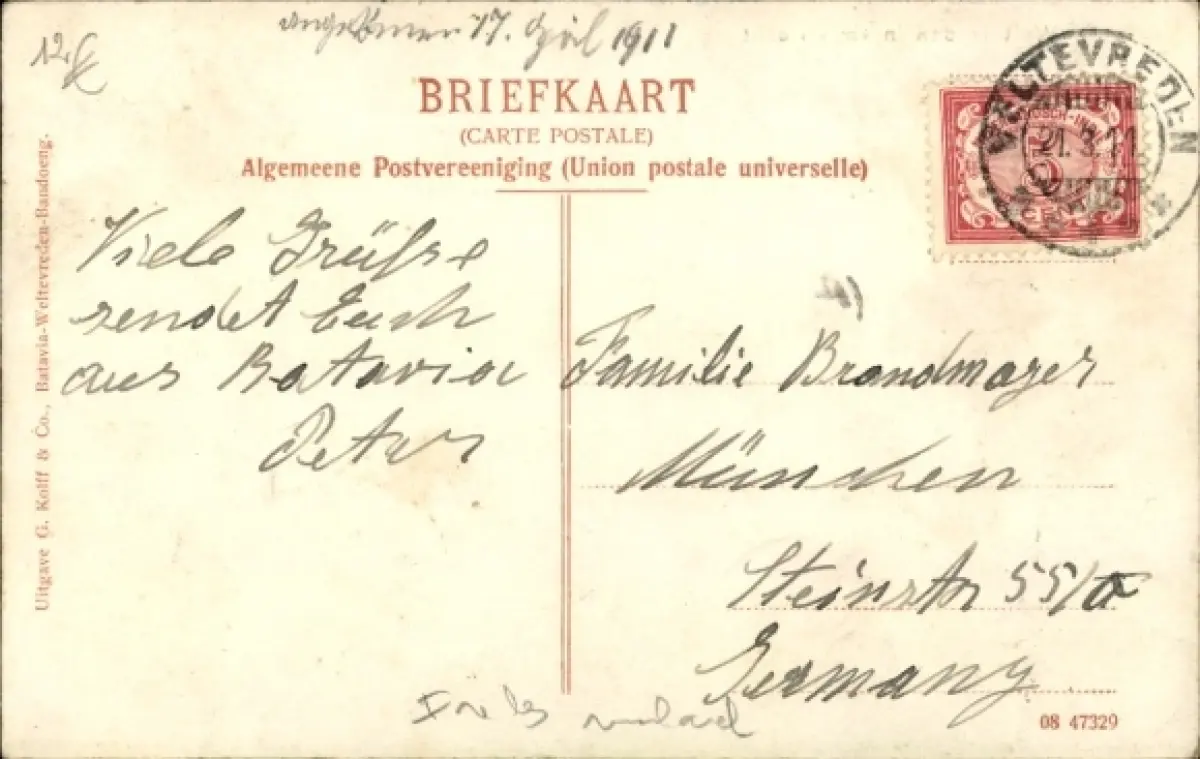 angekommen 17. April 1911
BRIEFKAART
(CARTE POSTALE)
Algemeene Postvereeniging (Union postale universelle)
WELTEVREDEN
21.3.11
5
CENT
Viele Grüße
sendet Euch
aus Batavia
Peter
Familie Brandmayer
München
Steinstr 55/II
Germany
Uitgave G. Kolff & Co., Batavia-Weltevreden-Bandoeng.
08 47329